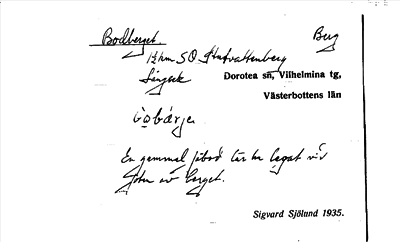 Bodberget Berg
1½ km SO Stutvattenberg
Långsele Dorotea sn, Vilhelmina tg,
Västerbottens län
En gammal fäbod lär ha legat vid
foten av berget.
Sigvard Sjölund 1935.